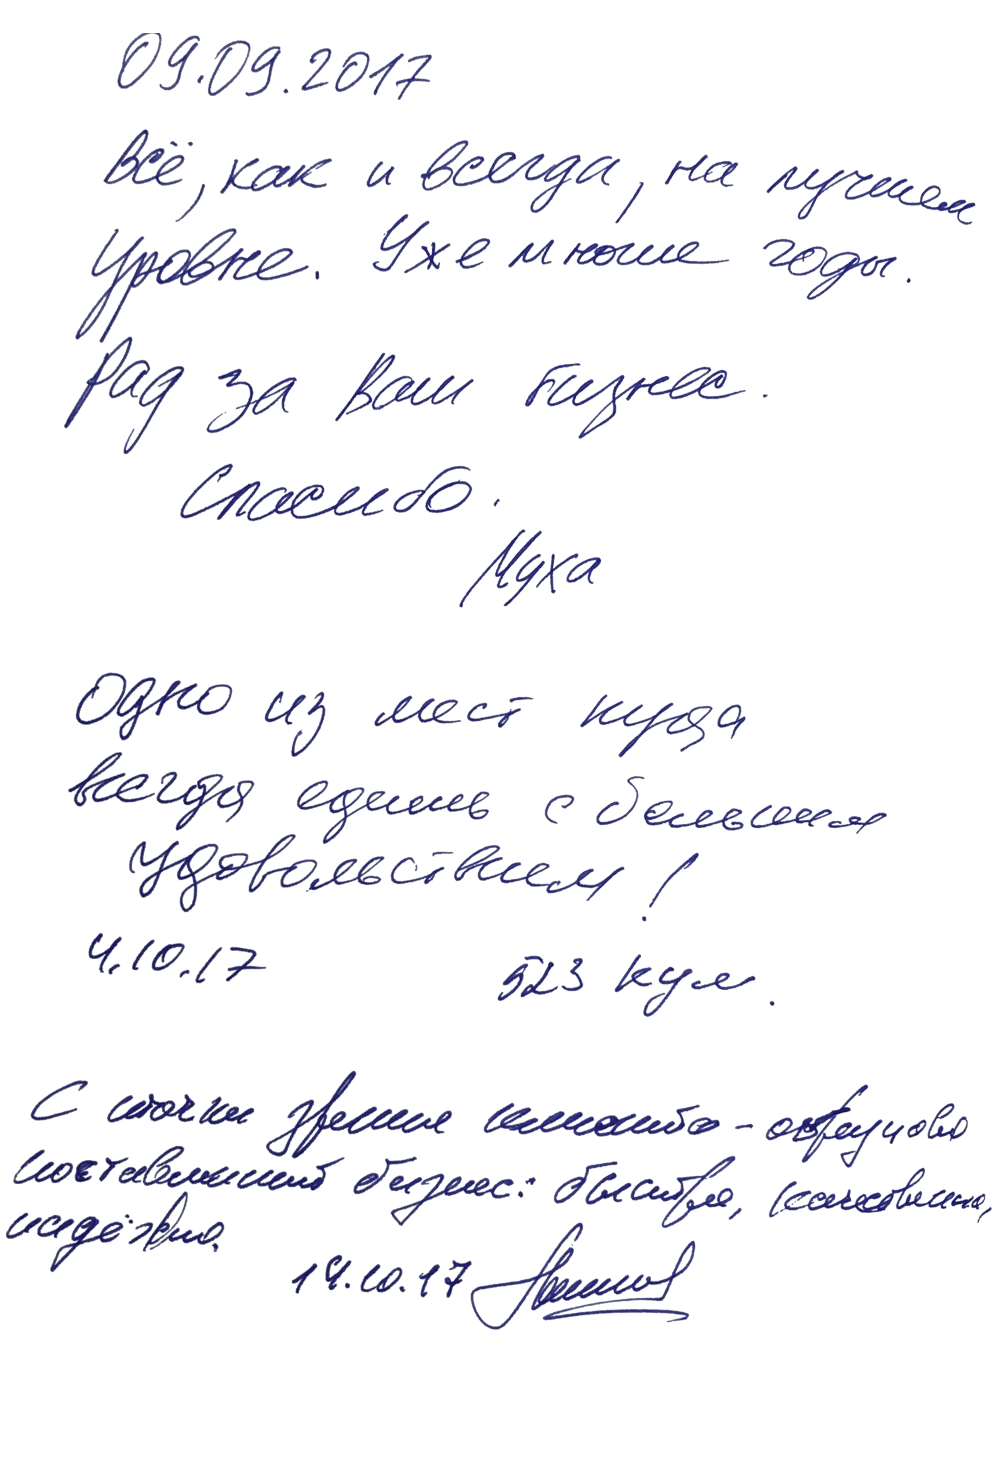 09.09.2017
Всё, как и всегда, на лучшем
уровне. Уже многие годы.
Рад за Ваш бизнес.
Спасибо.
Муха
Одно из мест куда
всегда едишь с большим
удовольствием!
4.10.17 523 кум.
С точки зрения клиента - образцово
поставленный бизнес: быстро, качественно,
надёжно.
14.10.17